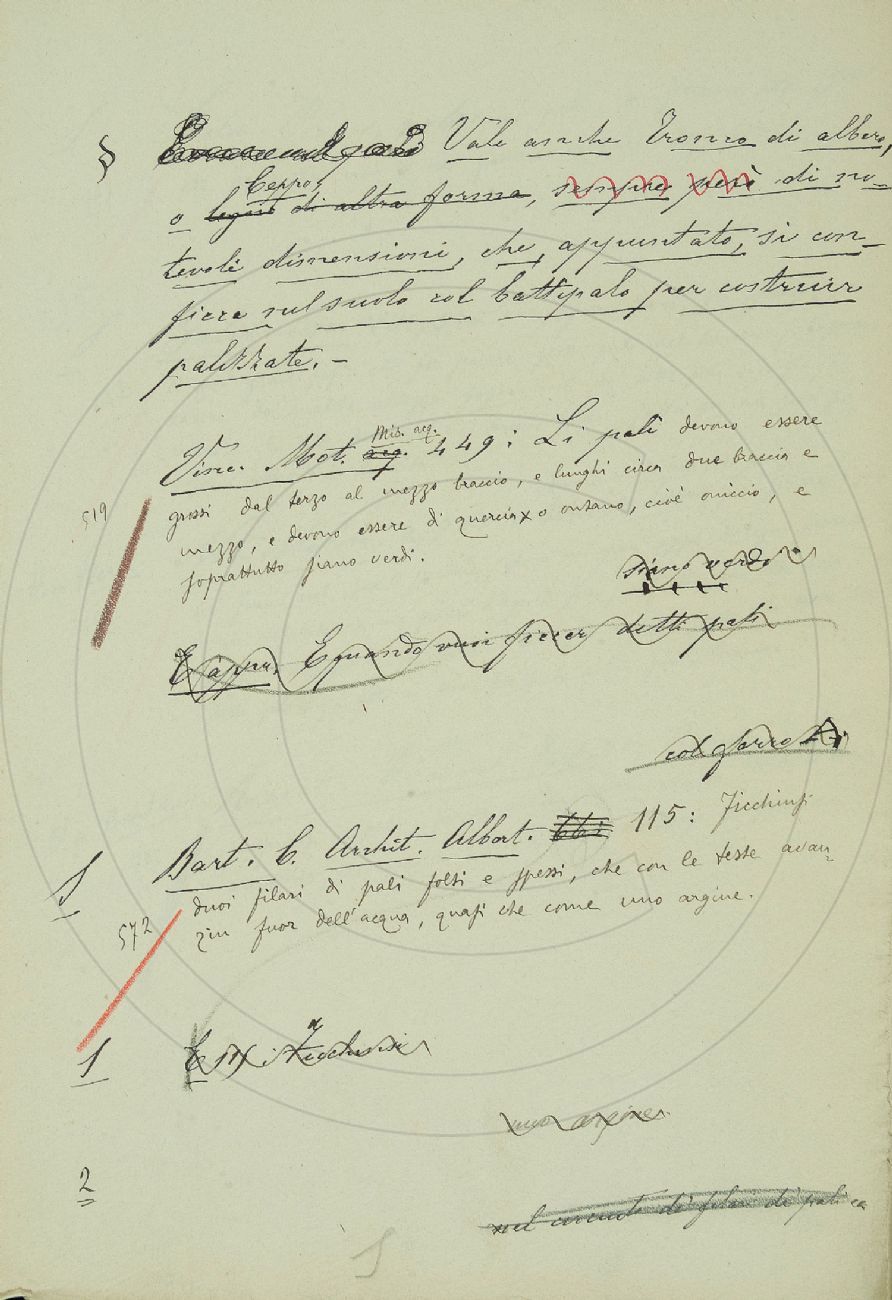 § Vale anche Tronco di albero,
Ceppo,
o legno di altra forma, sempre però di no-
tevoli dimensioni, che, appuntato, si con-
ficca sul suolo col battipalo per costruire
palizzate. –
Mis. acq.
Vinc. Mot. acq. 449: Li pali devono essere
519 grossi dal terzo al mezzo braccio, e lunghi circa due braccia e
mezzo, e devono essere di quercia o ontano, cioè oniccio, e
soprattutto siano verdi.
siano verdi
E appr. E quando vuoi ficcar detti pali
Bart. C. Archit. Albert. 115: Ficchinsi
duoi filari di pali folti e spessi, che con le teste avan-
572 zin fuor dell'acqua, quasi che come uno argine.
1
uno argine.
2
filari di pali